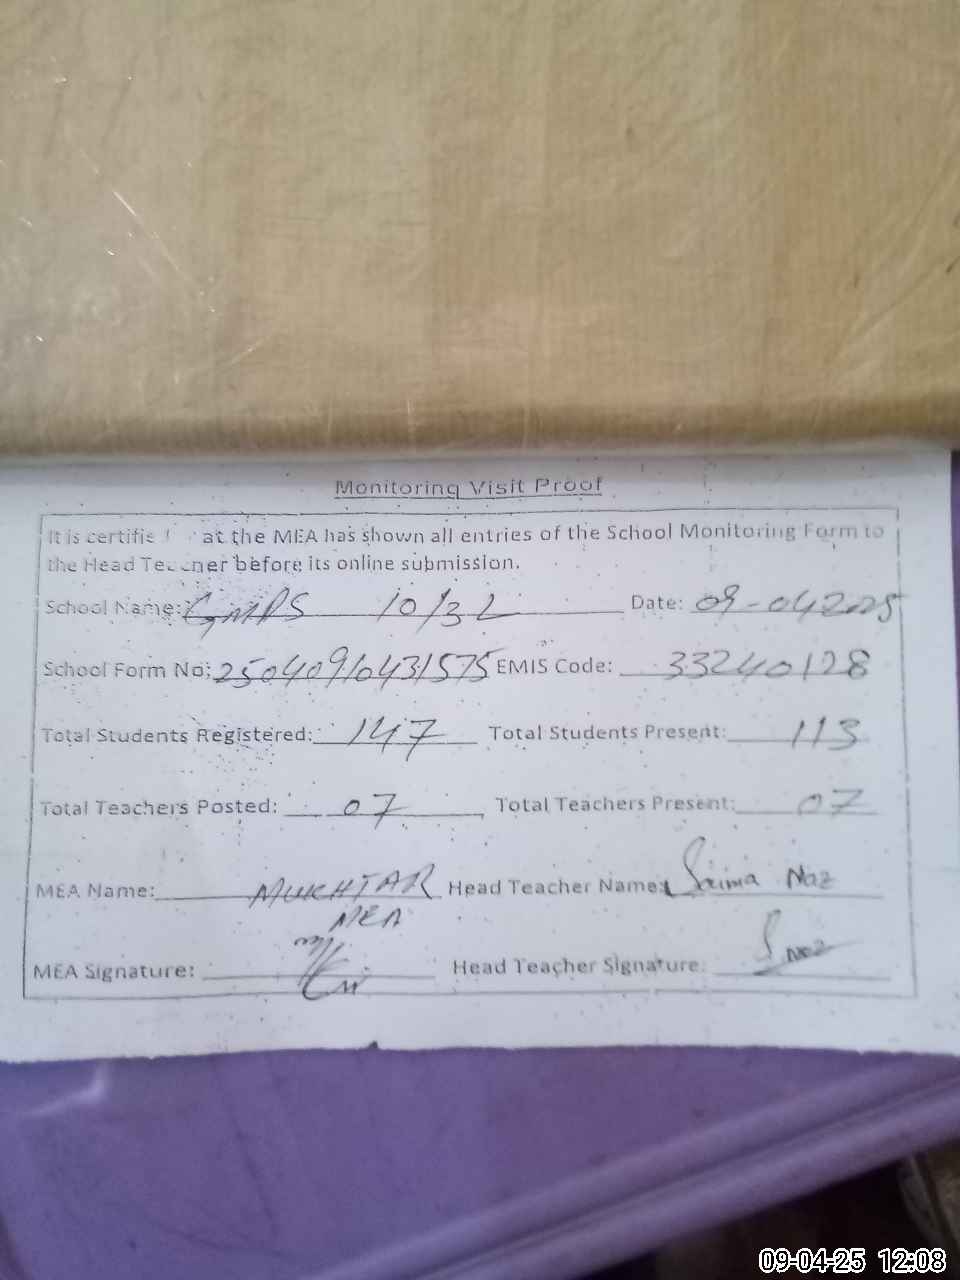 Monitoring Visit Proof
It is certifie at the MEA has shown all entries of the School Monitoring Form to
the Head Teacher before its online submission.
School Name: GMPS 10/3L Date: 09-042025
School Form No: 25040910431575 EMIS Code: 33240128
Total Students Registered: 147 Total Students Present: 113
Total Teachers Posted: 07 Total Teachers Present: 07
MEA Name: MUKHTAR Head Teacher Name: Saima Naz
MEA
MEA Signature: Head Teacher Signature: S Naz
09-04-25 12:08